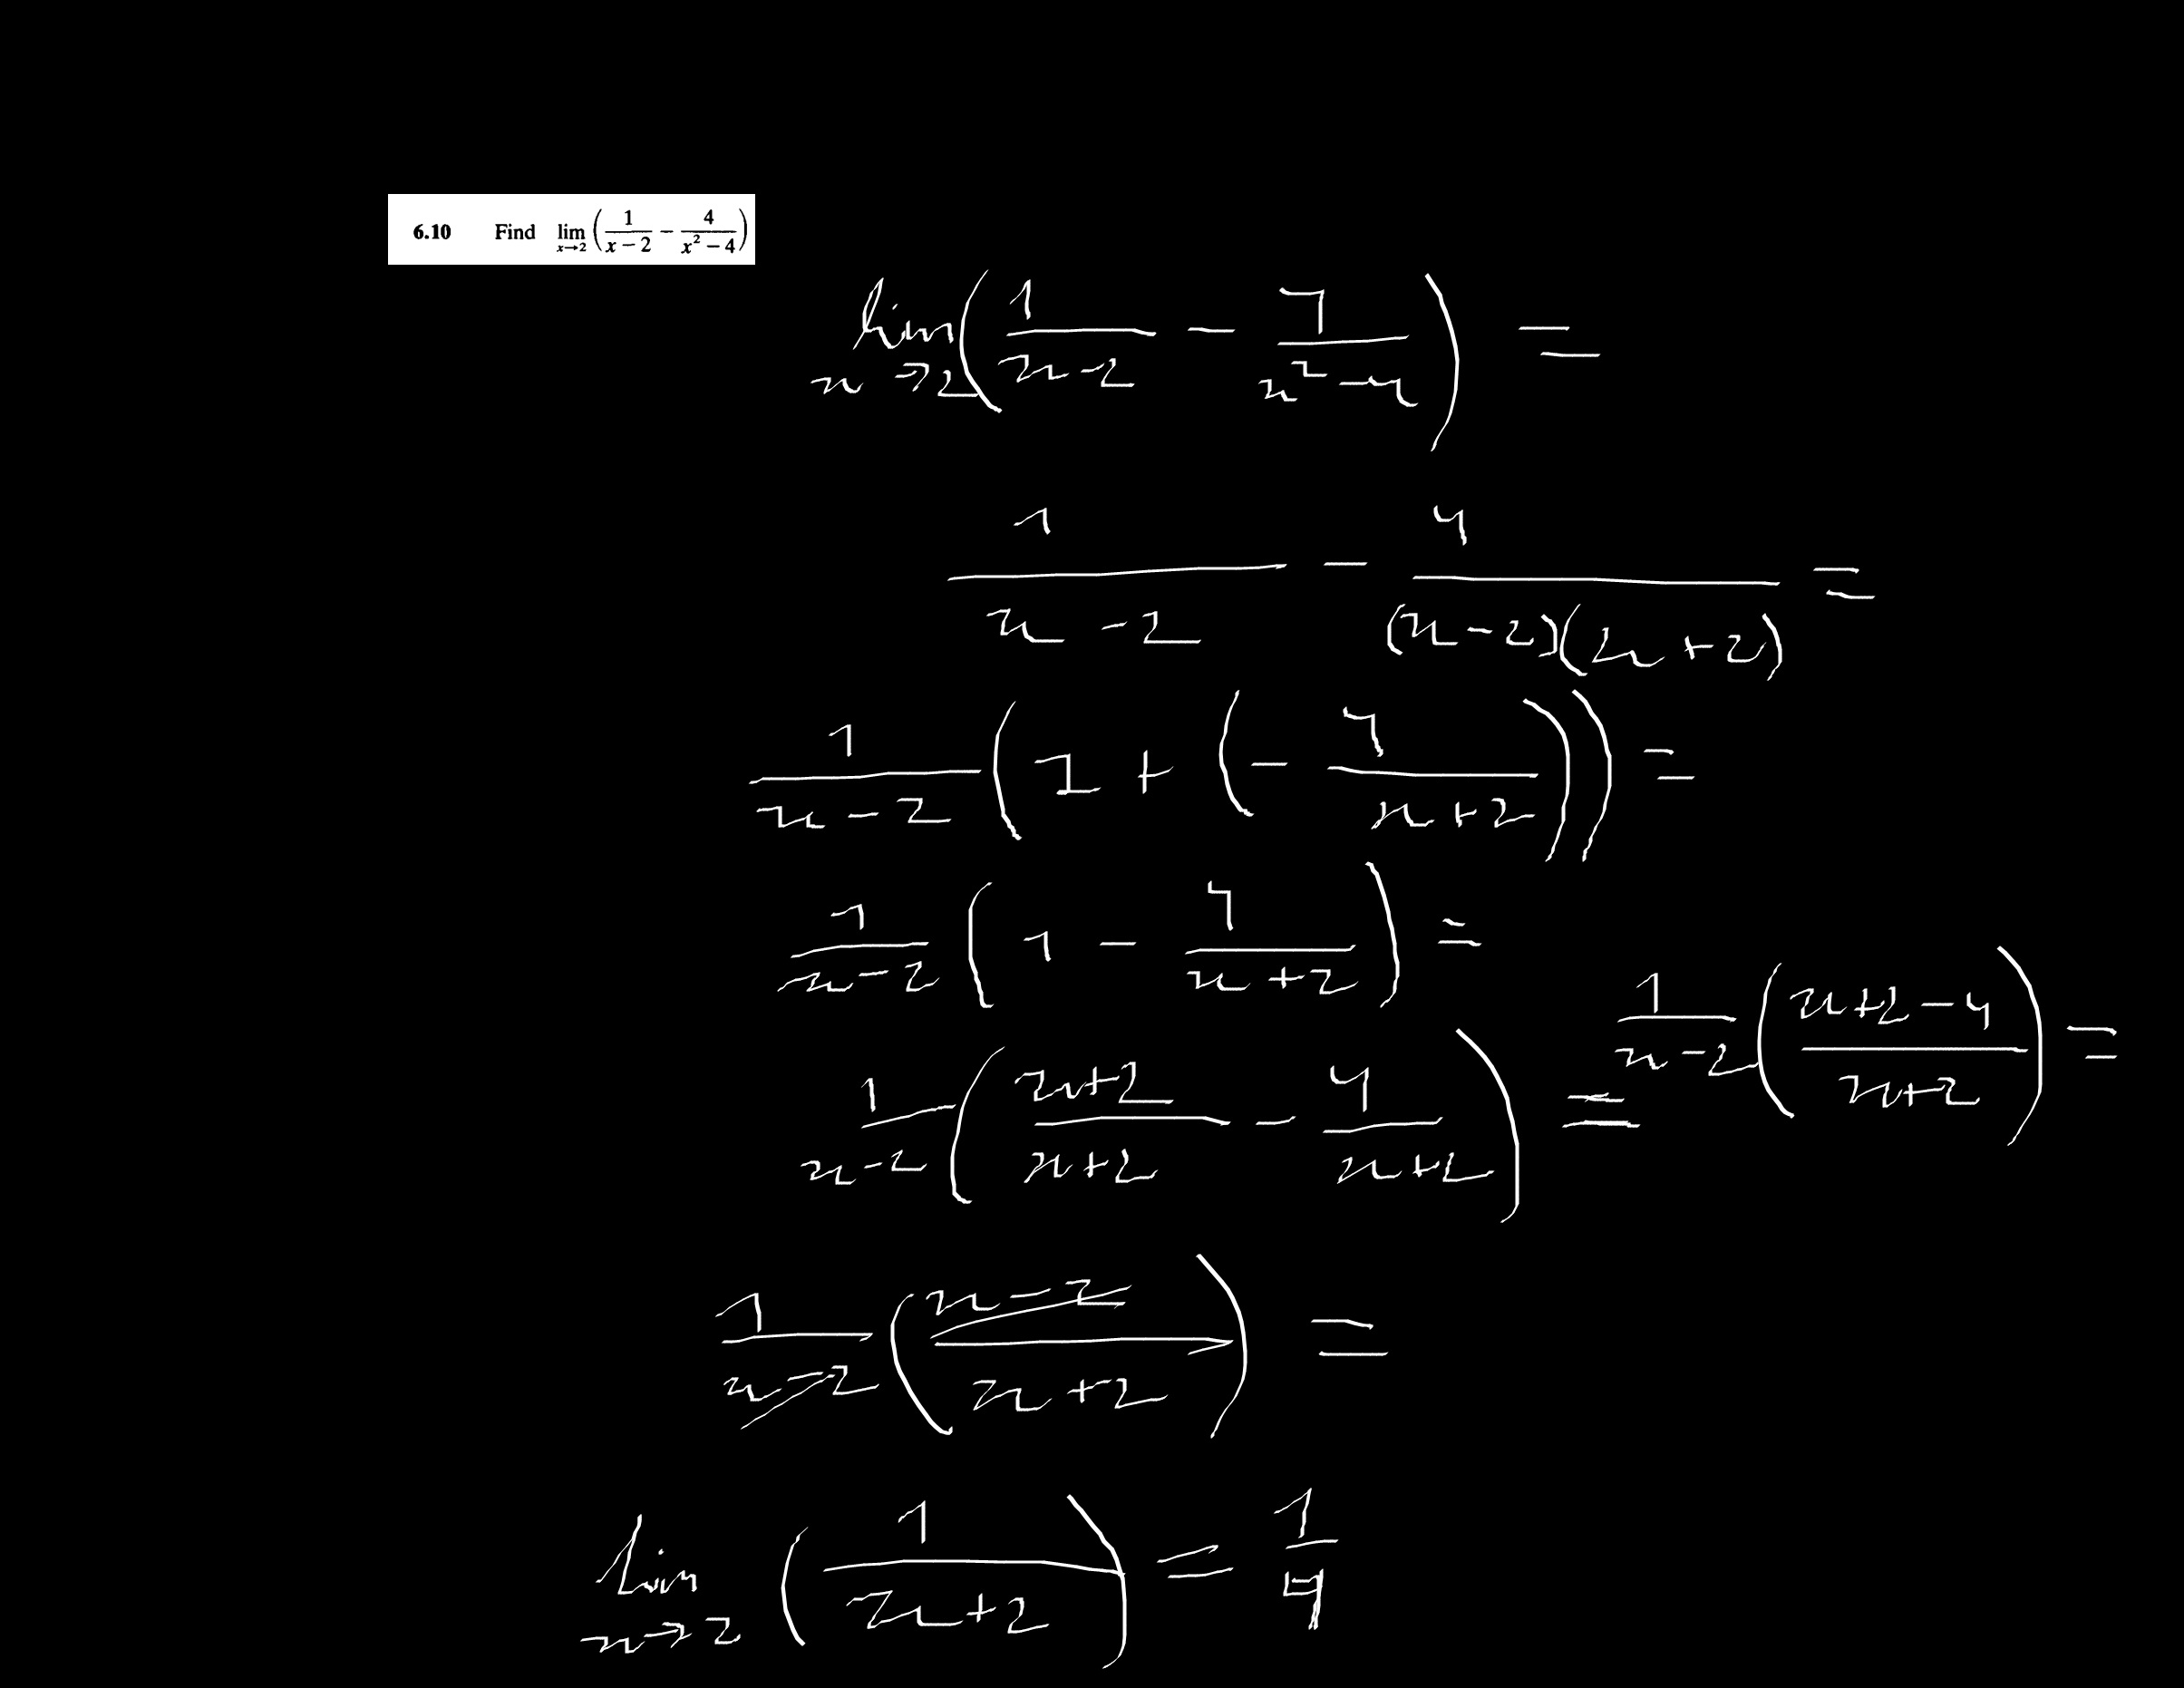 6.10 Find lim x→2 (1/(x − 2) − 4/(x² − 4))
lim x→2 (1/(x-2) − 4/(x²-4)) =
1/(x-2) − 4/((x-2)(x+2)) =
1/(x-2) (1 + (− 4/(x+2))) =
1/(x-2) (1 − 4/(x+2)) =
1/(x-2) ((x+2)/(x+2) − 4/(x+2)) =
1/(x-2) ((x+2-4)/(x+2)) =
1/(x-2) ((x-2)/(x+2)) =
lim x→2 (1/(x+2)) = 1/4